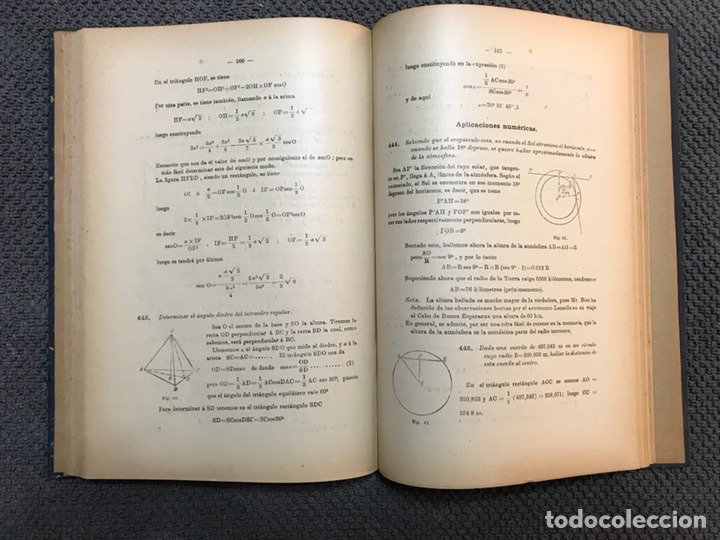 — 166 —
En el triángulo HOF, se tiene
HF²=OH²+OF²—2OH×OF cosO
Por otra parte, se tiene también, llamando a á la arista
HF=a√2 ; OH=1/2 a√2 ; OF=1/2 a√
luego sustituyendo
Ecuación que nos da el valor de cosO y por consiguiente el de senO ; pero es
más fácil determinar este del siguiente modo.
La figura HFBD , siendo un rectángulo, se tiene
a/2 =OFcos 1/2 O á IF=OFsen 1/2 O
luego
2× 1/2 ×IF=2OF²sen 1/2 O cos 1/2 O=OF²senO
es decir
senO= a×IF/OF² , IF= HF/2 = 1/2 a√2 ; OF= 1/2 a√3
luego se tendrá por último
443. Determinar el ángulo diedro del tetraedro regular.
Sea O el centro de la base y SO la altura. Tiremos la
recta OD perpendicular á BC y la recta SD la cual, como
sabemos, será perpendicular á BC.
Llamemos α al ángulo SDO que mide al diedro, y a á la
arista SC=AC=..... El triángulo SDO nos da
OD=SDcosα de donde cosα= OD/SD ....... (1)
pero OD= 1/3 AD= 1/3 ACcosDAC= 1/3 AC cos 30º, puesto
que el ángulo del triángulo equilátero vale 60º
Para determinar á SD tenemos en el triángulo rectángulo SDC
SD=SCcosDSC=SCcos30º
— 167 —
luego sustituyendo en la expresión (1)
cosα= 1/3 ACcos30º / SCcos30º = 1/3
y de aquí
α=70º 31' 43'',5
Aplicaciones numéricas.
444. Sabiendo que el crepúsculo cesa, no cuando el Sol atraviesa el horizonte, sino
cuando se halla 18º depreso, se quiere hallar aproximadamente la altura
de la atmósfera.
Sea AP' la dirección del rayo solar, que tangen-
te en P', llega á A, límite de la atmósfera. Según el
enunciado, el Sol se encuentra en ese momento 18º
depreso del horizonte, es decir, que se tiene
P'AH=18º
pero los ángulos P'AH y POP' son iguales por te-
ner sus lados respectivamente perpendiculares, luego
IOB=9º
Fig. 61.
Sentado esto, hallemos ahora la altura de la atmósfera AB=AO—R
pero AO/R = sec 9º , y por lo tanto
AB=R sec 9º—R=R (sec 9º - 1)=0.012 R
Suponiendo ahora que el radio de la Tierra valga 6366 kilómetros, tendremos
AB=76 kilómetros (próximamente).
Nota. La altura hallada es mucho mayor de la verdadera, pues Mr. Biot ha
deducido de las observaciones hechas por el astrónomo Lacaille en su viaje al
Cabo de Buena Esperanza una altura de 60 km.
En general, se admite, por ser una cifra fácil de retener en la memoria, que la
altura de la atmósfera es la centésima parte del radio terrestre.
445. Dada una cuerda de 437,342 m en un círculo
cuyo radio R=310,853 m, hallar la distancia de
esta cuerda al centro.
En el triángulo rectángulo AOC se conoce AO =
310,853 y AC = 1/2 (437,342) = 218,671; luego OC =
224,8 m.
todocoleccion